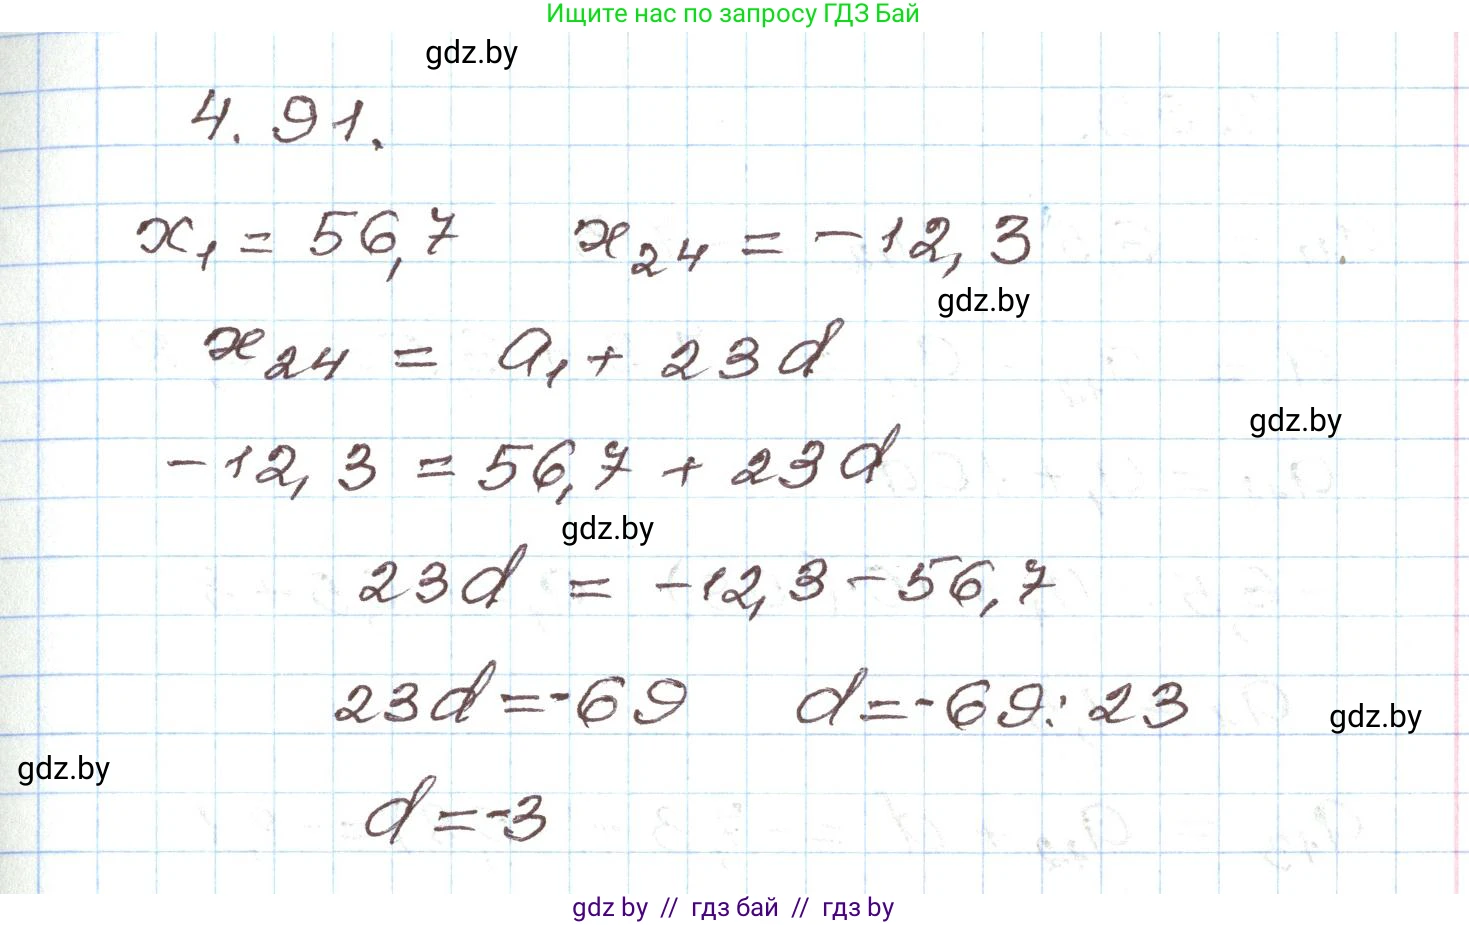 Ищите нас по запросу ГДЗ Бай
gdz.by
4.91.
x₁ = 56,7 x₂₄ = -12,3
gdz.by
x₂₄ = a₁ + 23d
gdz.by
-12,3 = 56,7 + 23d
gdz.by
23d = -12,3 - 56,7
23d = -69 d = -69 : 23
gdz.by
gdz.by
d = -3
gdz by // гдз бай // гдз by